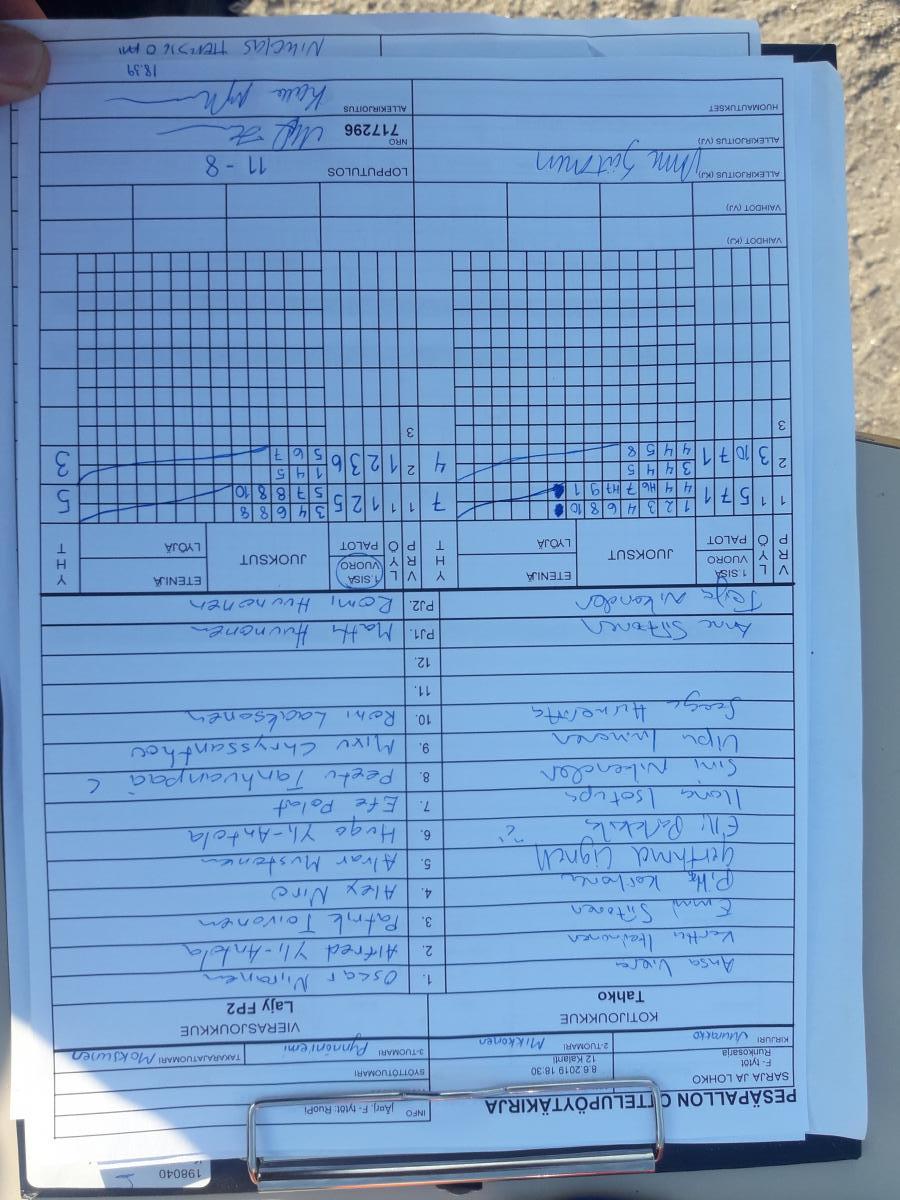 198040
PESÄPALLON OTTELUPÖYTÄKIRJA
INFO
Järj. F- tytöt: RuoPi
SARJA JA LOHKO
F- tytöt
Runkosarja
8.6.2019 18:30
12 Kalanti
SYÖTTÖTUOMARI
KIRJURI
2-TUOMARI Mikkonen
3-TUOMARI Pynnöniemi
TAKARAJATUOMARI Moksunen
KOTIJOUKKUE
Tahko
VIERASJOUKKUE
Lajy FP2
Ansa Viera 1. Oscar Niiranen
Kerttu Heinonen 2. Alfred Yli-Antola
Emmi Siitonen 3. Patrik Toivonen
Korhonen 4. Alex Niro
Gerthrud Lignell 5. Alvar Mustonen
Elli 6. Hugo Yli-Antola
Ilona Isotupa 7. Efe Polat
Sini Nikander 8. Peetu Tanhuanpää C
Vipu Immonen 9. Mixu Chryssanthou
10. Roni Laaksonen
11.
12.
Anne Siitonen PJ1. Matti Huunonen
Teija Nikander PJ2. Romi Huunonen
P R V
L Y Ö
1.SISÄ VUORO
PALOT
JUOKSUT
ETENIJÄ
LYÖJÄ
Y H T
P R V
L Y Ö
1.SISÄ VUORO
PALOT
JUOKSUT
ETENIJÄ
LYÖJÄ
Y H T
1 1 5 7 1
1 2 3 4 6 8 10
4 4 H6 7 H7 9 1
7
1 1 1 2 5
3 4 6 8 8
5 7 8 8 10
5
2 3 10 7 1
3 4 4 5
4 4 5 8
4
2 1 2 3 6
1 4 5
5 6 7
3
3
3
VAIHDOT (KJ)
VAIHDOT (VJ)
ALLEKIRJOITUS (KJ) Anne Siitonen
LOPPUTULOS 11 - 8
ALLEKIRJOITUS (VJ)
NRO
717296
HUOMAUTUKSET
ALLEKIRJOITUS
18.39